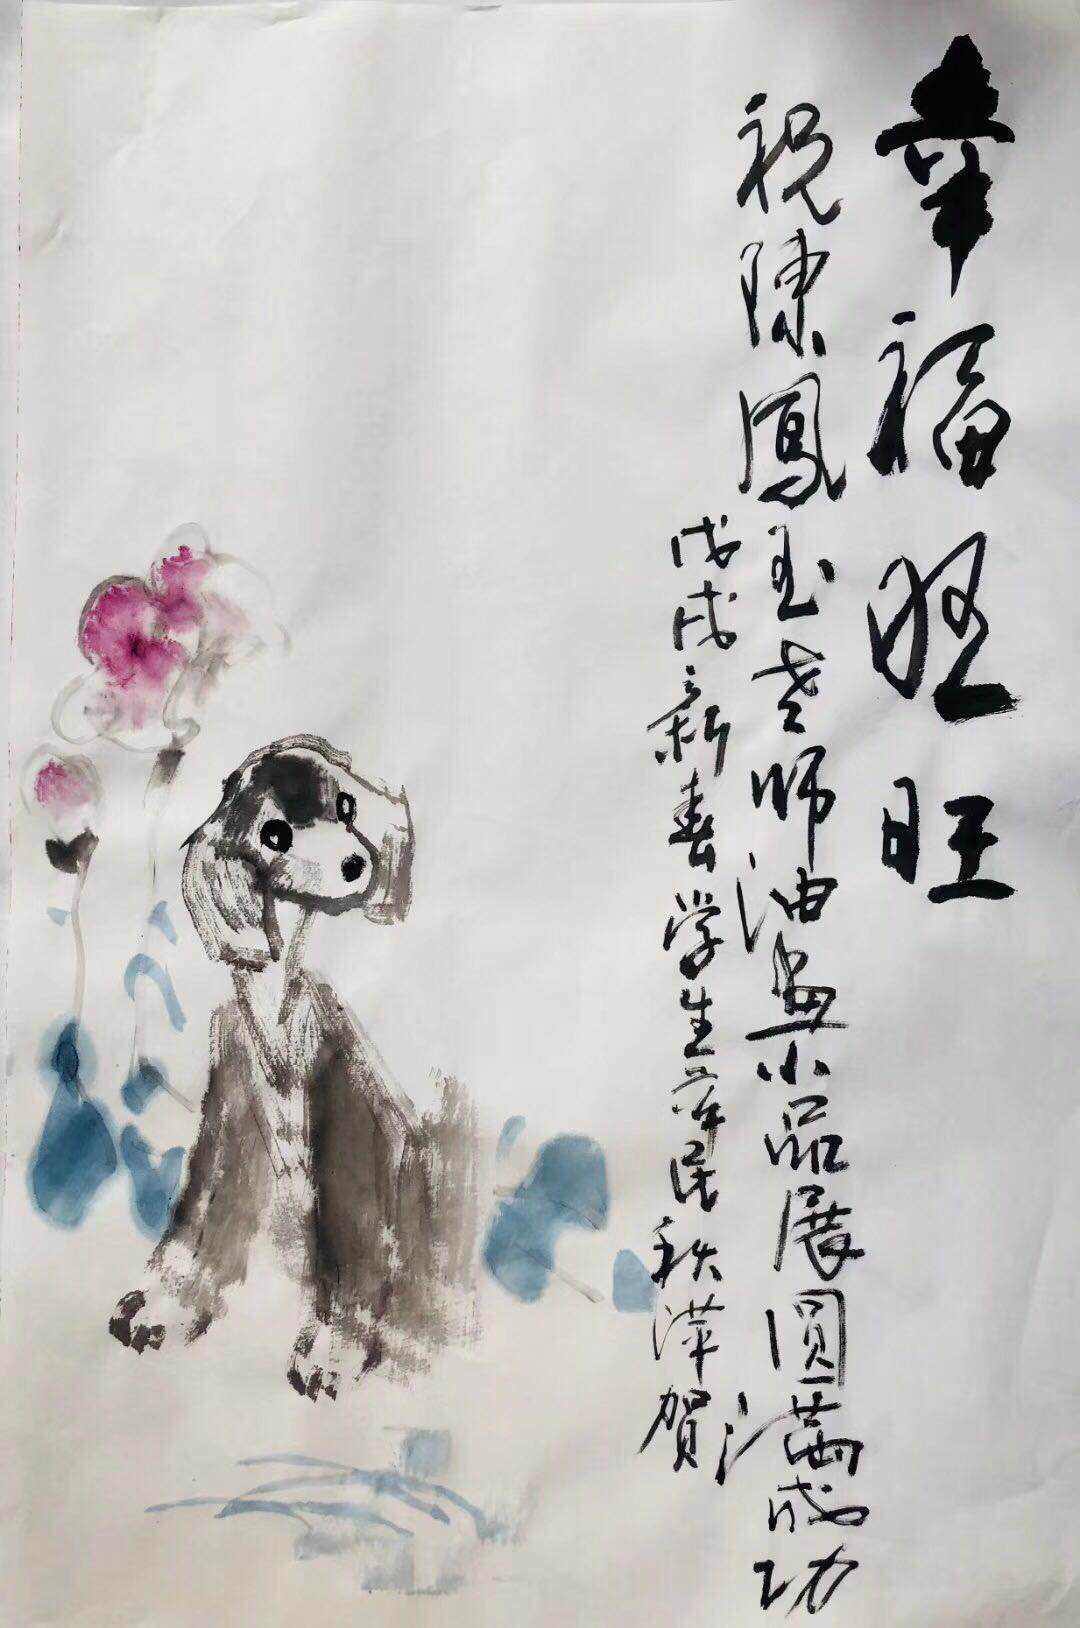 幸福旺旺
祝陳鳳玉老师油画小品展圆满成功
戊戌新春学生薛民秋萍賀